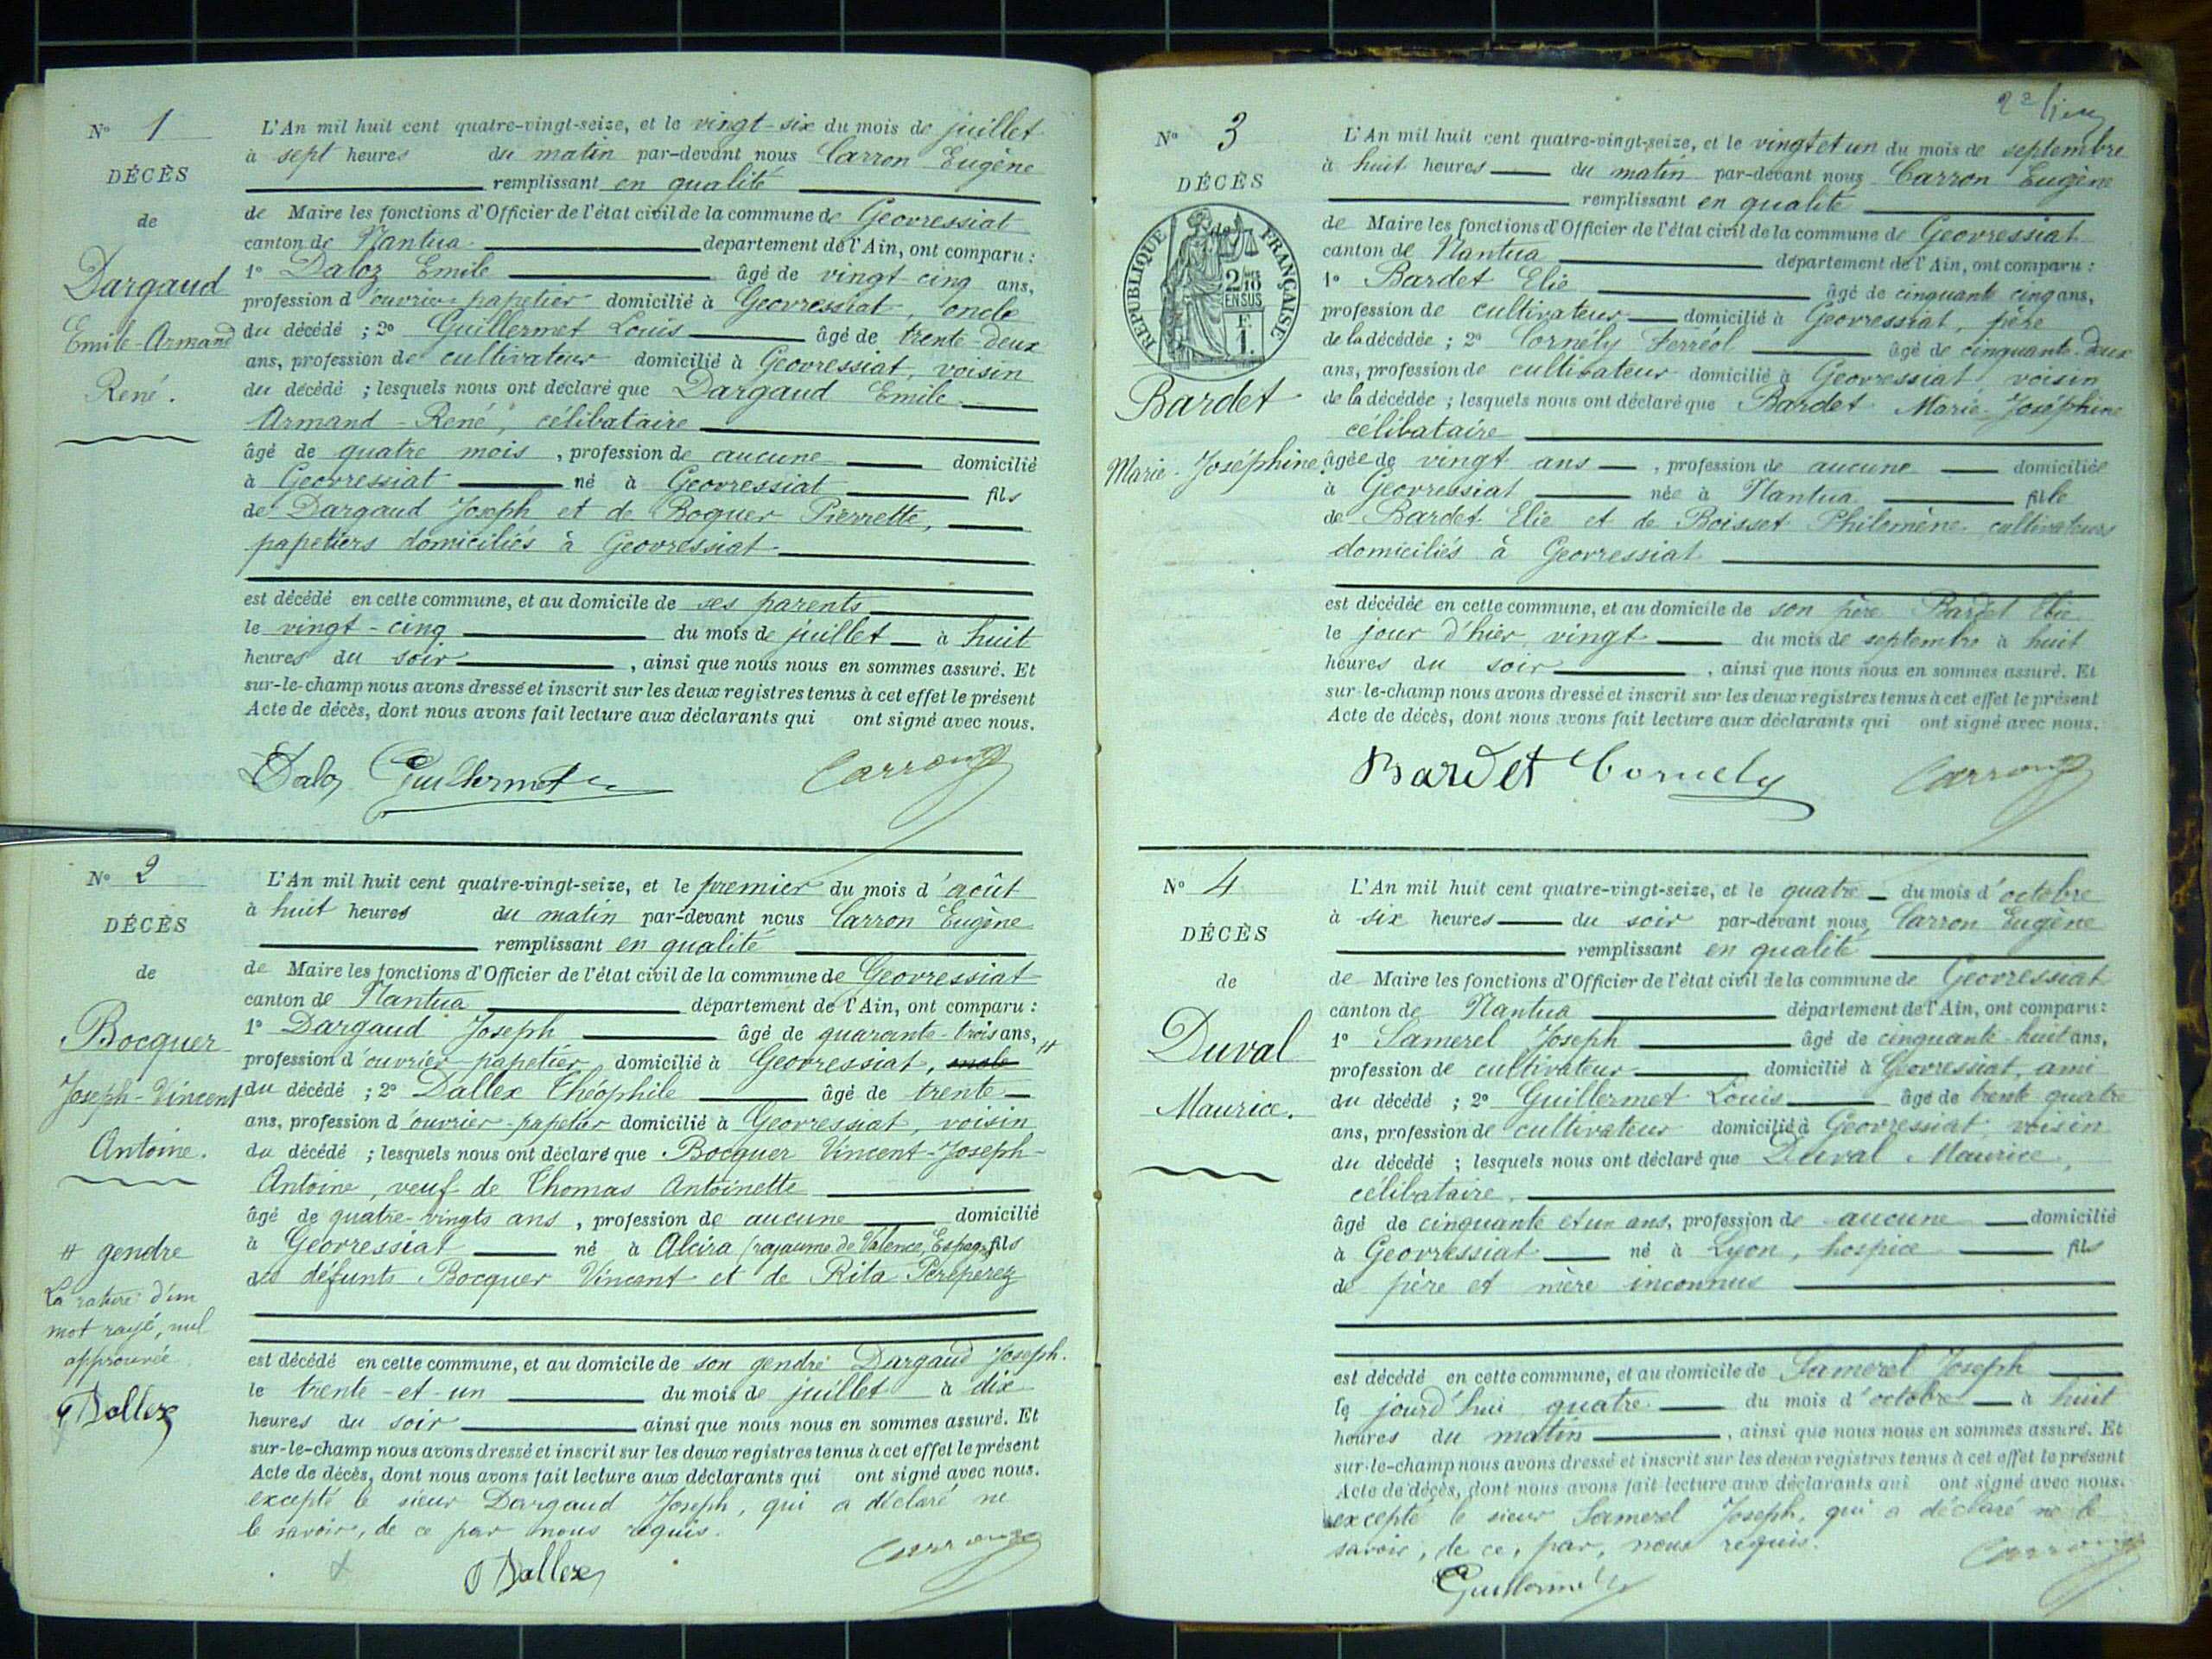 N° 1
DÉCÈS
de
Dargaud
Emile-Armand
René.
L'An mil huit cent quatre-vingt-seize, et le vingt-six du mois de juillet
à sept heures du matin par-devant nous Carron Eugène
remplissant en qualité
de Maire les fonctions d'Officier de l'état civil de la commune de Geovressiat
canton de Nantua département de l'Ain, ont comparu :
1° Daloz Emile âgé de vingt-cinq ans,
profession d'ouvrier papetier domicilié à Geovressiat, oncle
du décédé ; 2° Guillermet Louis âgé de trente-deux
ans, profession de cultivateur domicilié à Geovressiat, voisin
du décédé ; lesquels nous ont déclaré que Dargaud Emile
Armand-René, célibataire
âgé de quatre mois, profession de aucune domicilié
à Geovressiat né à Geovressiat fils
de Dargaud Joseph et de Boquer Pierrette,
papetiers domiciliés à Geovressiat
est décédé en cette commune, et au domicile de ses parents
le vingt-cinq du mois de juillet à huit
heures du soir, ainsi que nous nous en sommes assuré. Et
sur-le-champ nous avons dressé et inscrit sur les deux registres tenus à cet effet le présent
Acte de décès, dont nous avons fait lecture aux déclarants qui ont signé avec nous.
Daloz Guillermet Carron
N° 2
DÉCÈS
de
Bocquer
Joseph-Vincent
Antoine.
# gendre
La rature d'un
mot rayé, nul
approuvée
Dallex
L'An mil huit cent quatre-vingt-seize, et le premier du mois d'août
à huit heures du matin par-devant nous Carron Eugène
remplissant en qualité
de Maire les fonctions d'Officier de l'état civil de la commune de Geovressiat
canton de Nantua département de l'Ain, ont comparu :
1° Dargaud Joseph âgé de quarante-trois ans,
profession d'ouvrier papetier, domicilié à Geovressiat, #
du décédé ; 2° Dallex Théophile âgé de trente
ans, profession d'ouvrier-papetier domicilié à Geovressiat, voisin
du décédé ; lesquels nous ont déclaré que Bocquer Vincent-Joseph-
Antoine, veuf de Thomas Antoinette
âgé de quatre-vingts ans, profession de aucune domicilié
à Geovressiat né à Alcira (royaume de Valence, Espagne) fils
des défunts Bocquer Vincent et de Rita Pereperez
est décédé en cette commune, et au domicile de son gendre Dargaud Joseph.
le trente-et-un du mois de juillet à dix
heures du soir ainsi que nous nous en sommes assuré. Et
sur-le-champ nous avons dressé et inscrit sur les deux registres tenus à cet effet le présent
Acte de décès, dont nous avons fait lecture aux déclarants qui ont signé avec nous.
excepté le sieur Dargaud Joseph, qui a déclaré ne
le savoir, de ce par nous requis.
Dallex Carron
N° 3
DÉCÈS
de
RÉPUBLIQUE FRANÇAISE
2/10
EN SUS
F.
1.
Bardet
Marie-Joséphine
L'An mil huit cent quatre-vingt-seize, et le vingt et un du mois de septembre
à huit heures du matin par-devant nous Carron Eugène
remplissant en qualité
de Maire les fonctions d'Officier de l'état civil de la commune de Geovressiat
canton de Nantua département de l'Ain, ont comparu :
1° Bardet Elie âgé de cinquante cinq ans,
profession de cultivateur domicilié à Geovressiat, père
de la décédée ; 2° Cornély Ferréol âgé de cinquante-deux
ans, profession de cultivateur domicilié à Geovressiat, voisin
de la décédée ; lesquels nous ont déclaré que Bardet Marie-Joséphine
célibataire
âgée de vingt ans, profession de aucune domiciliée
à Geovressiat née à Nantua fille
de Bardet Elie et de Boisset Philomène cultivateurs
domiciliés à Geovressiat
est décédée en cette commune, et au domicile de son père Bardet Elie
le jour d'hier, vingt du mois de septembre à huit
heures du soir, ainsi que nous nous en sommes assuré. Et
sur-le-champ nous avons dressé et inscrit sur les deux registres tenus à cet effet le présent
Acte de décès, dont nous avons fait lecture aux déclarants qui ont signé avec nous.
Bardet Cornely Carron
N° 4
DÉCÈS
de
Duval
Maurice.
L'An mil huit cent quatre-vingt-seize, et le quatre du mois d'octobre
à six heures du soir par-devant nous Carron Eugène
remplissant en qualité
de Maire les fonctions d'Officier de l'état civil de la commune de Geovressiat
canton de Nantua département de l'Ain, ont comparu :
1° Samerel Joseph âgé de cinquante-huit ans,
profession de cultivateur domicilié à Geovressiat, ami
du décédé ; 2° Guillermet Louis âgé de trente-quatre
ans, profession de cultivateur domicilié à Geovressiat, voisin
du décédé ; lesquels nous ont déclaré que Duval Maurice,
célibataire,
âgé de cinquante et un ans, profession de aucune domicilié
à Geovressiat né à Lyon, hospice fils
de père et mère inconnus
est décédé en cette commune, et au domicile de Samerel Joseph
le jourd'hui quatre du mois d'octobre à huit
heures du matin, ainsi que nous nous en sommes assuré. Et
sur-le-champ nous avons dressé et inscrit sur les deux registres tenus à cet effet le présent
Acte de décès, dont nous avons fait lecture aux déclarants qui ont signé avec nous.
excepté le sieur Samerel Joseph, qui a déclaré ne le
savoir, de ce, par, nous requis.
Guillermet Carron